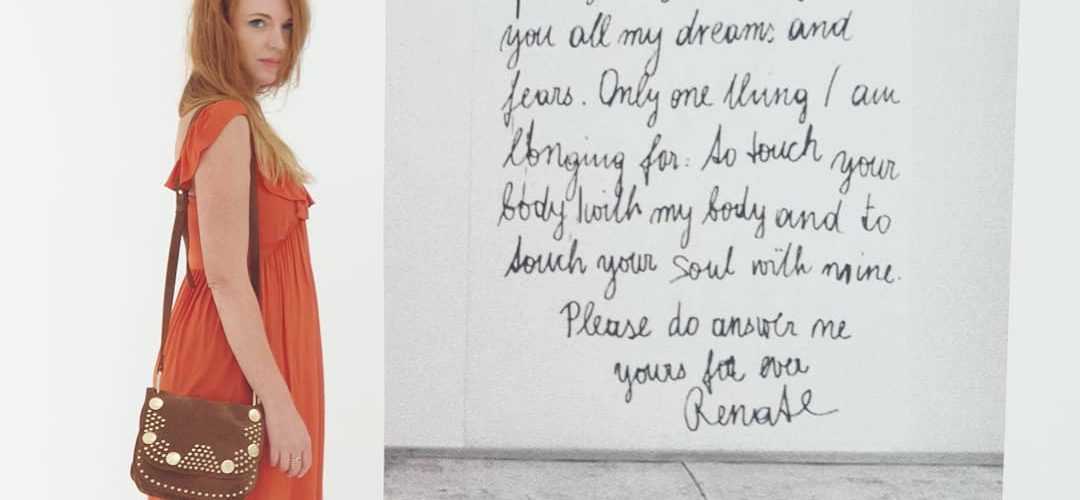 you all my dreams and
fears. Only one thing I am
longing for: to touch your
body with my body and to
touch your soul with mine.
Please do answer me
yours for ever
Renate